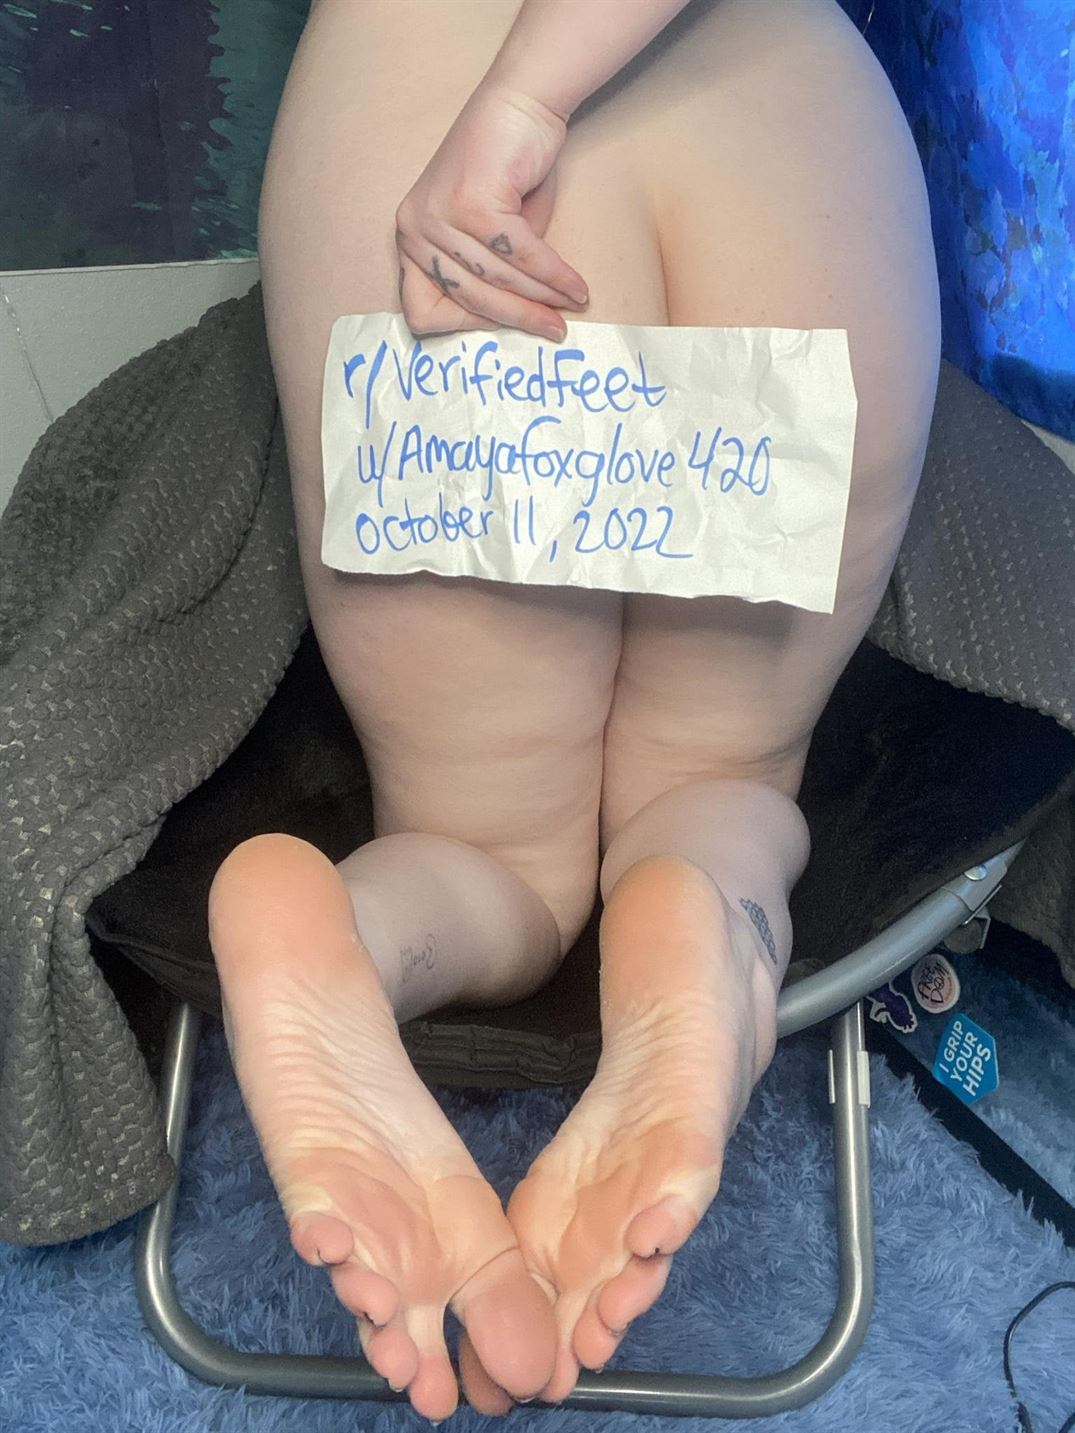 r/VerifiedFeet
u/Amayafoxglove420
october 11, 2022
I GRIP
YOUR
HIPS